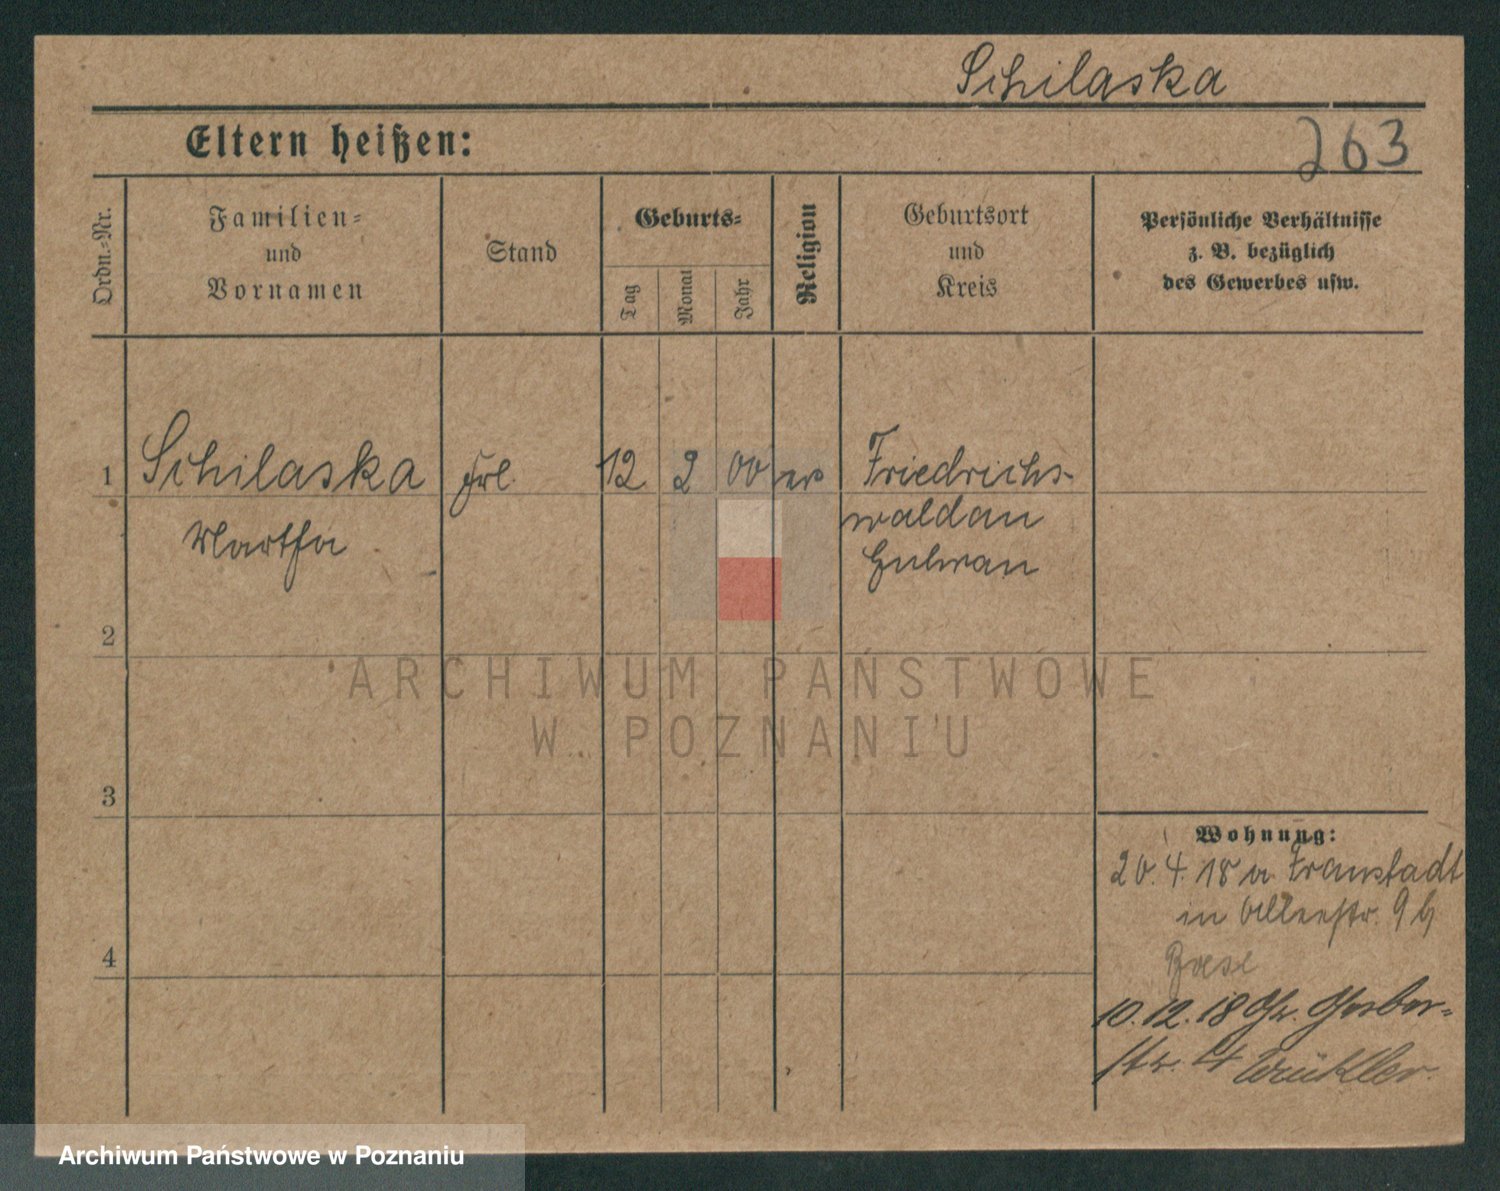 Schilaska
Eltern heißen:
263
Ordn.-Nr.
Familien-
und
Vornamen
Stand
Geburts-
Tag
Monat
Jahr
Religion
Geburtsort
und
Kreis
Persönliche Verhältnisse
z. B. bezüglich
des Gewerbes usw.
1 Schilaska Frl. 12 2 00 ev Friedrichs-
Martha
waldau
2
ARCHIWUM PAŃSTWOWE
W POZNANIU
3
Wohnung:
20.4.18 v. Fraustadt
in Alleestr. 9b
4
10.12.18 Gr. Gerber-
str. 4
Archiwum Państwowe w Poznaniu